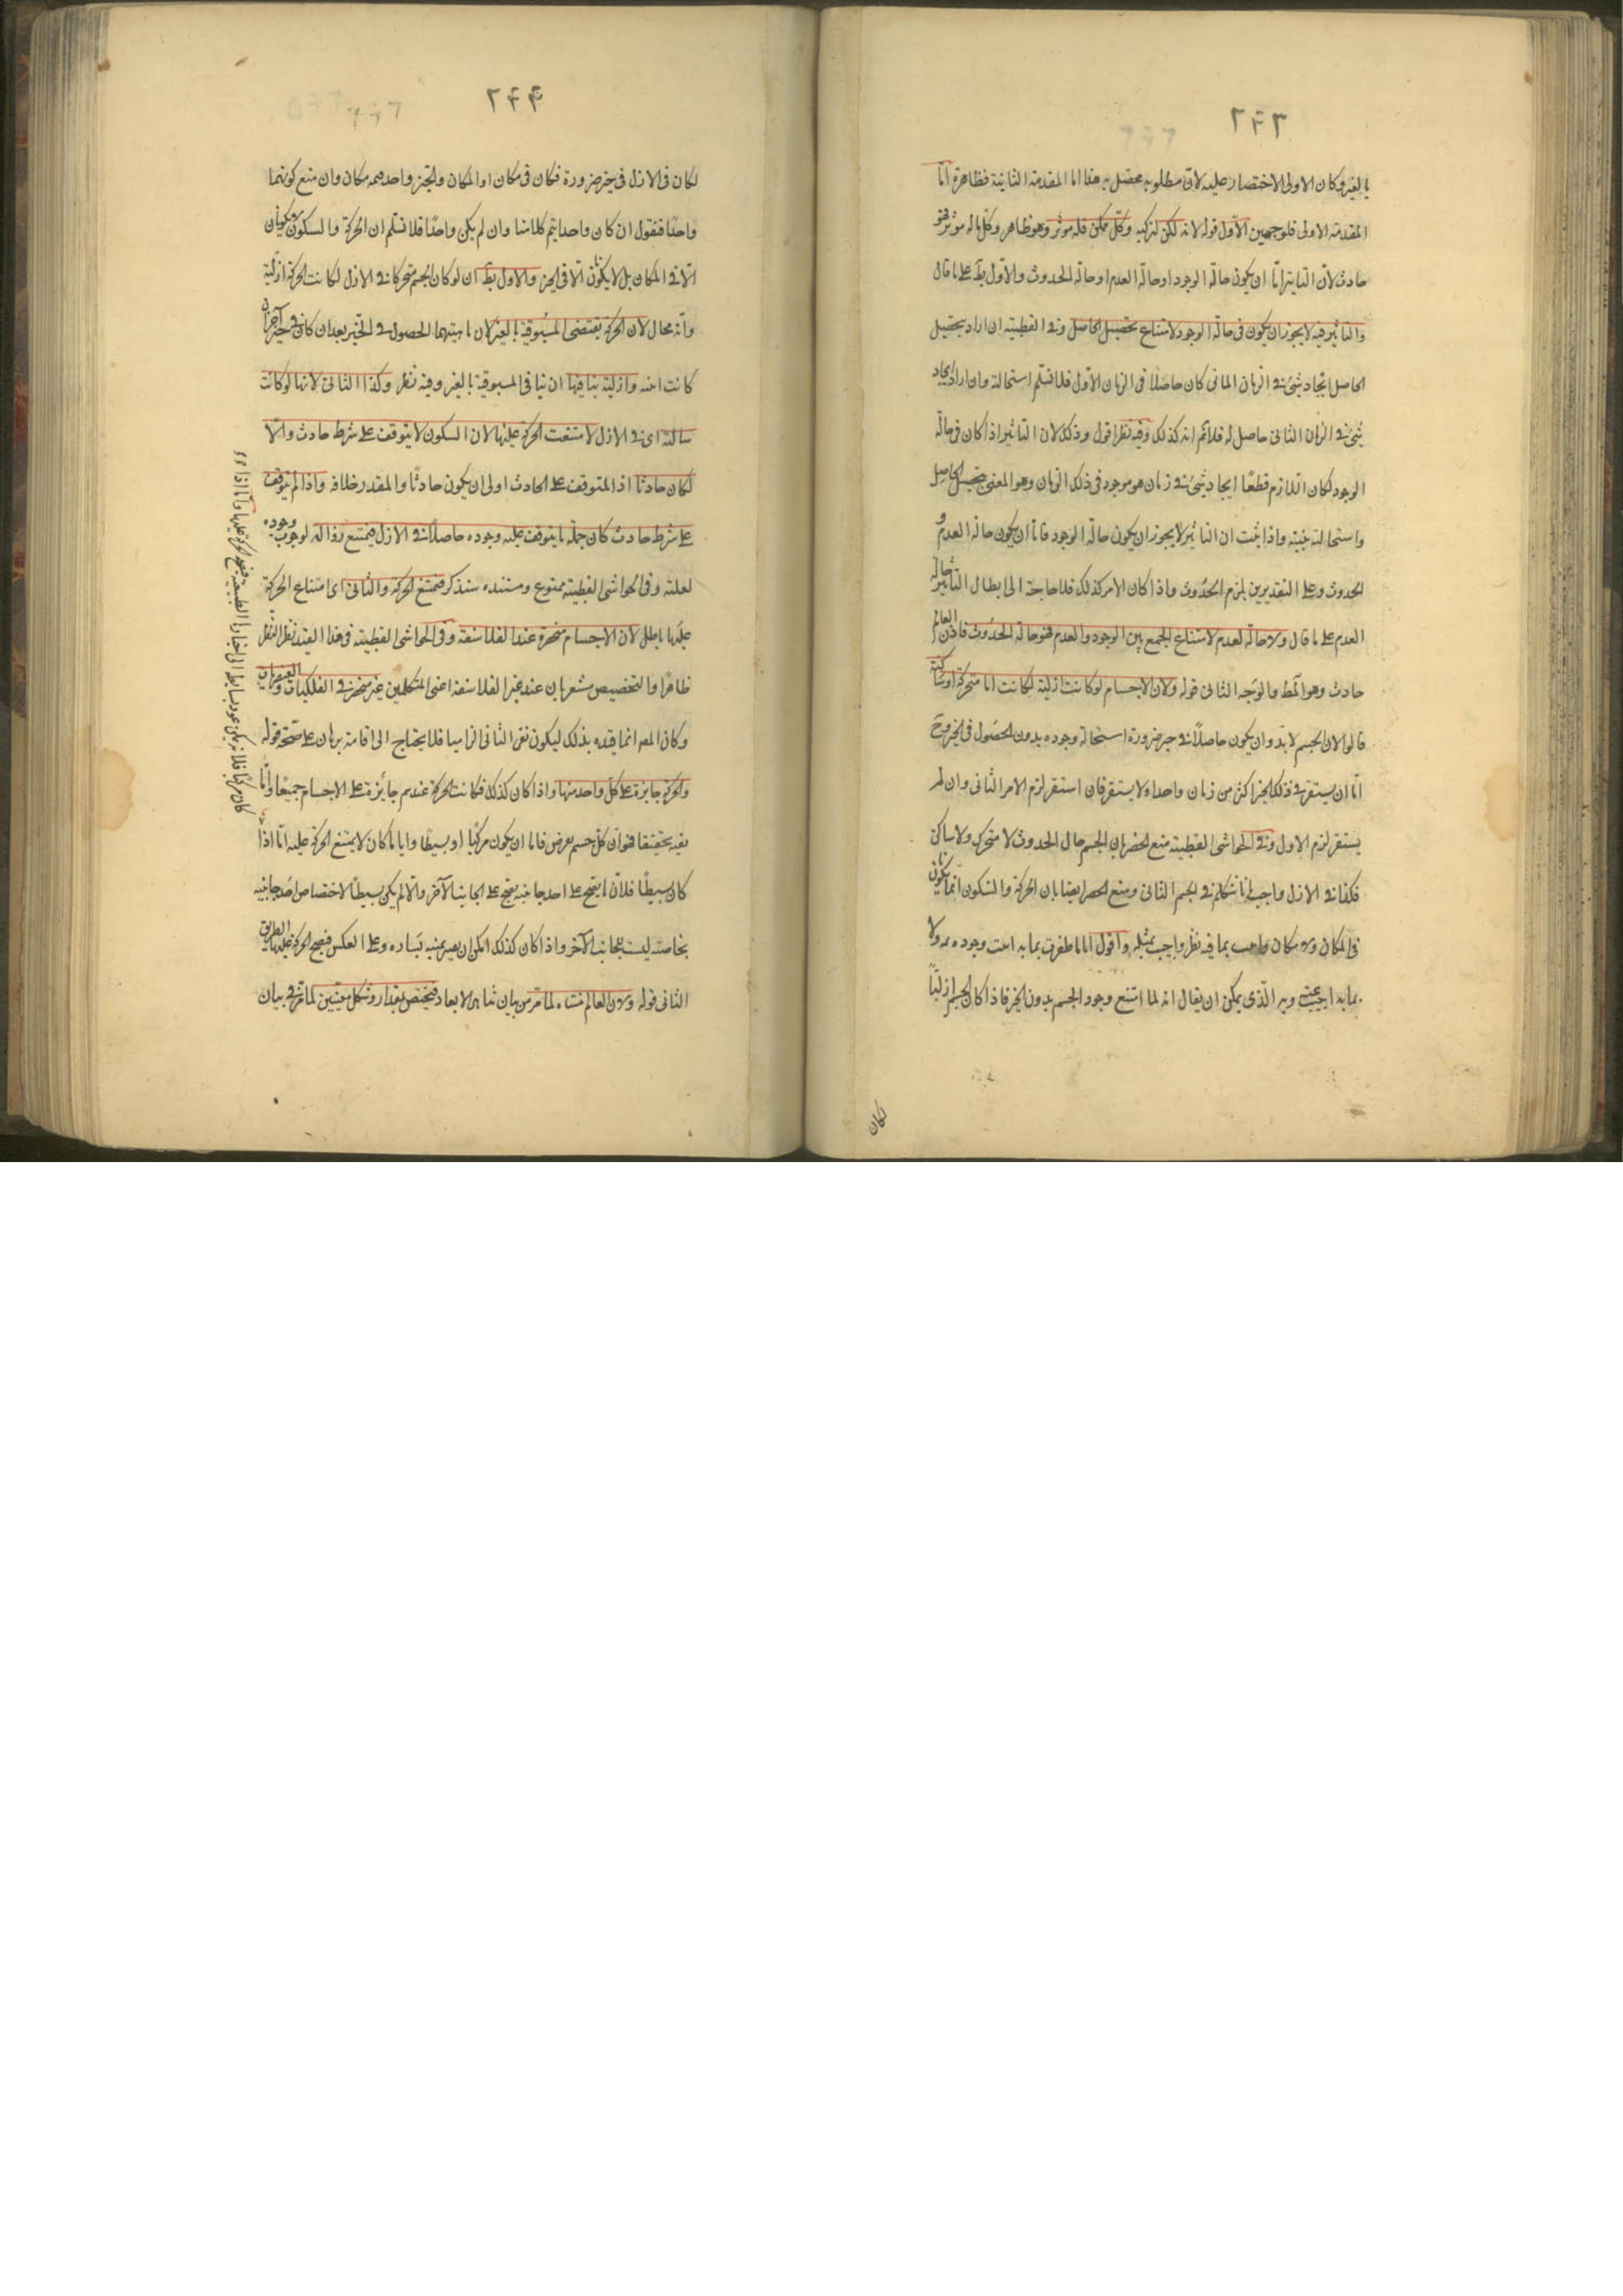 ٢٤٣
بالغير وكان الاولى الاختصار عليه لان مطلوبه يحصل به هذا اما المقدمة الثانية فظاهرة اما
المقدمة الاولى فلوجهين الاول قوله لانه ممكن لتركبه وكل ممكن فله موثر وهو ظاهر وكل ماله موثر فهو
حادث لان التاثير اما ان يكون حالة الوجود او حالة العدم او حالة الحدوث والاول بط على ما قال
والتاثير فيه لا يجوز ان يكون فى حالة الوجود لامتناع تحصيل الحاصل وفى القطبية ان اراد بتحصيل
الحاصل ايجاد شئ فى الزمان الثانى كان حاصلا فى الزمان الاول فلا نسلم استحالته وان اراد ايجاد
شئ فى الزمان الثانى حاصل له فلا نم انه كذلك وفيه نظر اقول وذلك لان التاثير اذا كان فى حالة
الوجود لكان اللازم قطعًا ايجاد شئ فى زمان هو موجود فى ذلك الزمان وهو المعنى بتحصيل الحاصل
واستحالته بينة واذا ثبت ان التاثير لا يجوز ان يكون حالة الوجود فاما ان يكون حالة العدم و
الحدوث وعلى التقديرين يلزم الحدوث واذا كان الامر كذلك فلا حاجة الى ابطال التاثير حالة
العدم على ما قال ولا حالة العدم لامتناع الجمع بين الوجود والعدم فهو حالة الحدوث فاذن العالم
حادث وهو المط والوجه الثانى قوله ولان الاجسام لو كانت ازلية لكانت اما متحركة او ساكنة
قالوا لان الجسم لابد وان يكون حاصلًا فى حيز ضرورة استحالة وجوده بدون الحصول فى الحيز وح
اما ان يستقر فى ذلك الحيز اكثر من زمان واحد او لا يستقر فان استقر لزم الامر الثانى وان لم
يستقر لزم الاول وفى الحواشى القطبية منع الحصر بان الجسم حال الحدوث لا متحرك ولا ساكن
فكذا فى الازل واجيب بانا نتكلم فى الجسم الثانى ومنع الحصر ايضا بان الحركة والسكون انما يكونان
فى المكان ولا مكان واجيب بما فيه نظر واجيب بمثله واقول انا ما ظفرت بما به وجوده ولا
بما به اجيب عنه وبر الذى يمكن ان يقال انه لما امتنع وجود الجسم بدون الحيز فاذا كان الجسم ازليًا
لكان
٢٤٤
لكان فى الازل فى حيز ضرورة فكان فى مكان اذ المكان والحيز واحد مكان وان منع كونهما
واحدًا فنقول ان كان واحدا يتم كلامنا وان لم يكن واحدًا فلا نسلم ان الحركة والسكون لا يكونان
الا فى المكان بل لا يكونان الا فى الحيز والاول بط ان لو كان الجسم متحركا فى الازل لكانت الحركة ازلية
وانه محال لان الحركة يقتضى المسبوقية بالغير لان ماهيتهما الحصول فى الحيز بعد ان كان فى حيز آخر ان
كانت اينه وازلية ينافيها ان ينافى المسبوقية بالغير وفيه نظر وكذا الثانى لانها لو كانت
ساكنة اى فى الازل لامتنعت الحركة عليها لان السكون لا يتوقف على شرط حادث والا
لكان حادثا اذ المتوقف على الحادث اولى ان يكون حادثًا والمقدر خلافه واذا لم يتوقف
على شرط حادث كان جملة ما يتوقف عليه وجوده حاصلًا فى الازل فيمتنع زواله لوجوب وجوده
لعلته وفى الحواشى القطبية ممنوع ومستنده سنذكر فتمتنع الحركة والثانى اى امتناع الحركة
عليها باطل لان الاجسام منحصرة عند الفلاسفة وفى الحواشى القطبية فى هذا القيد نظر النظر
ظاهرا والتخصيص مشعر بان عند غير الفلاسفة اعنى المتكلمين غير منحصر فى الفلكيات والعنصريات
وكان المص انما قيده بذلك ليكون نفى الثانى الزاميا فلا يحتاج الى اقامة برهان على صحة قوله
والحركة جايزة على كل واحد منها واذا كان كذلك فكانت الحركة عندهم جائزة على الاجسام جميعًا واما
بقية تحقيقا فهو ان كل جسم يعرض فاما ان يكون مركبًا او بسيطًا وايا ما كان لا يمتنع الحركة عليه اما اذا
كان بسيطًا فلان ما يصح على احد جانبيه يصح على الجانب الآخر والا لم يكن بسيطًا لاختصاص احد جانبيه
بخاصته ليست للجانب الآخر واذا كان كذلك امكن ان يصير يمينه يساره وعلى العكس فيصح الحركة عليها الطريق
الثانى قوله ولان العالم متناه لما مر من بيان تناهى الابعاد فيختص بمقدار وشكل معينين لما مر فى بيان